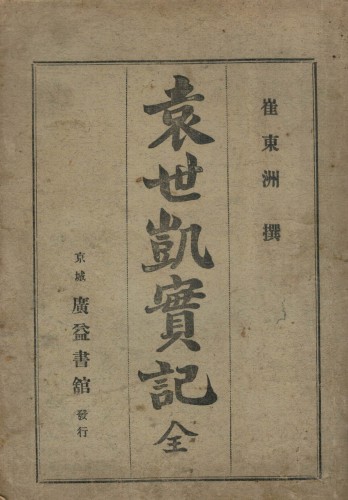 崔東洲 撰
袁世凱實記 全
京城 廣益書舘 發行